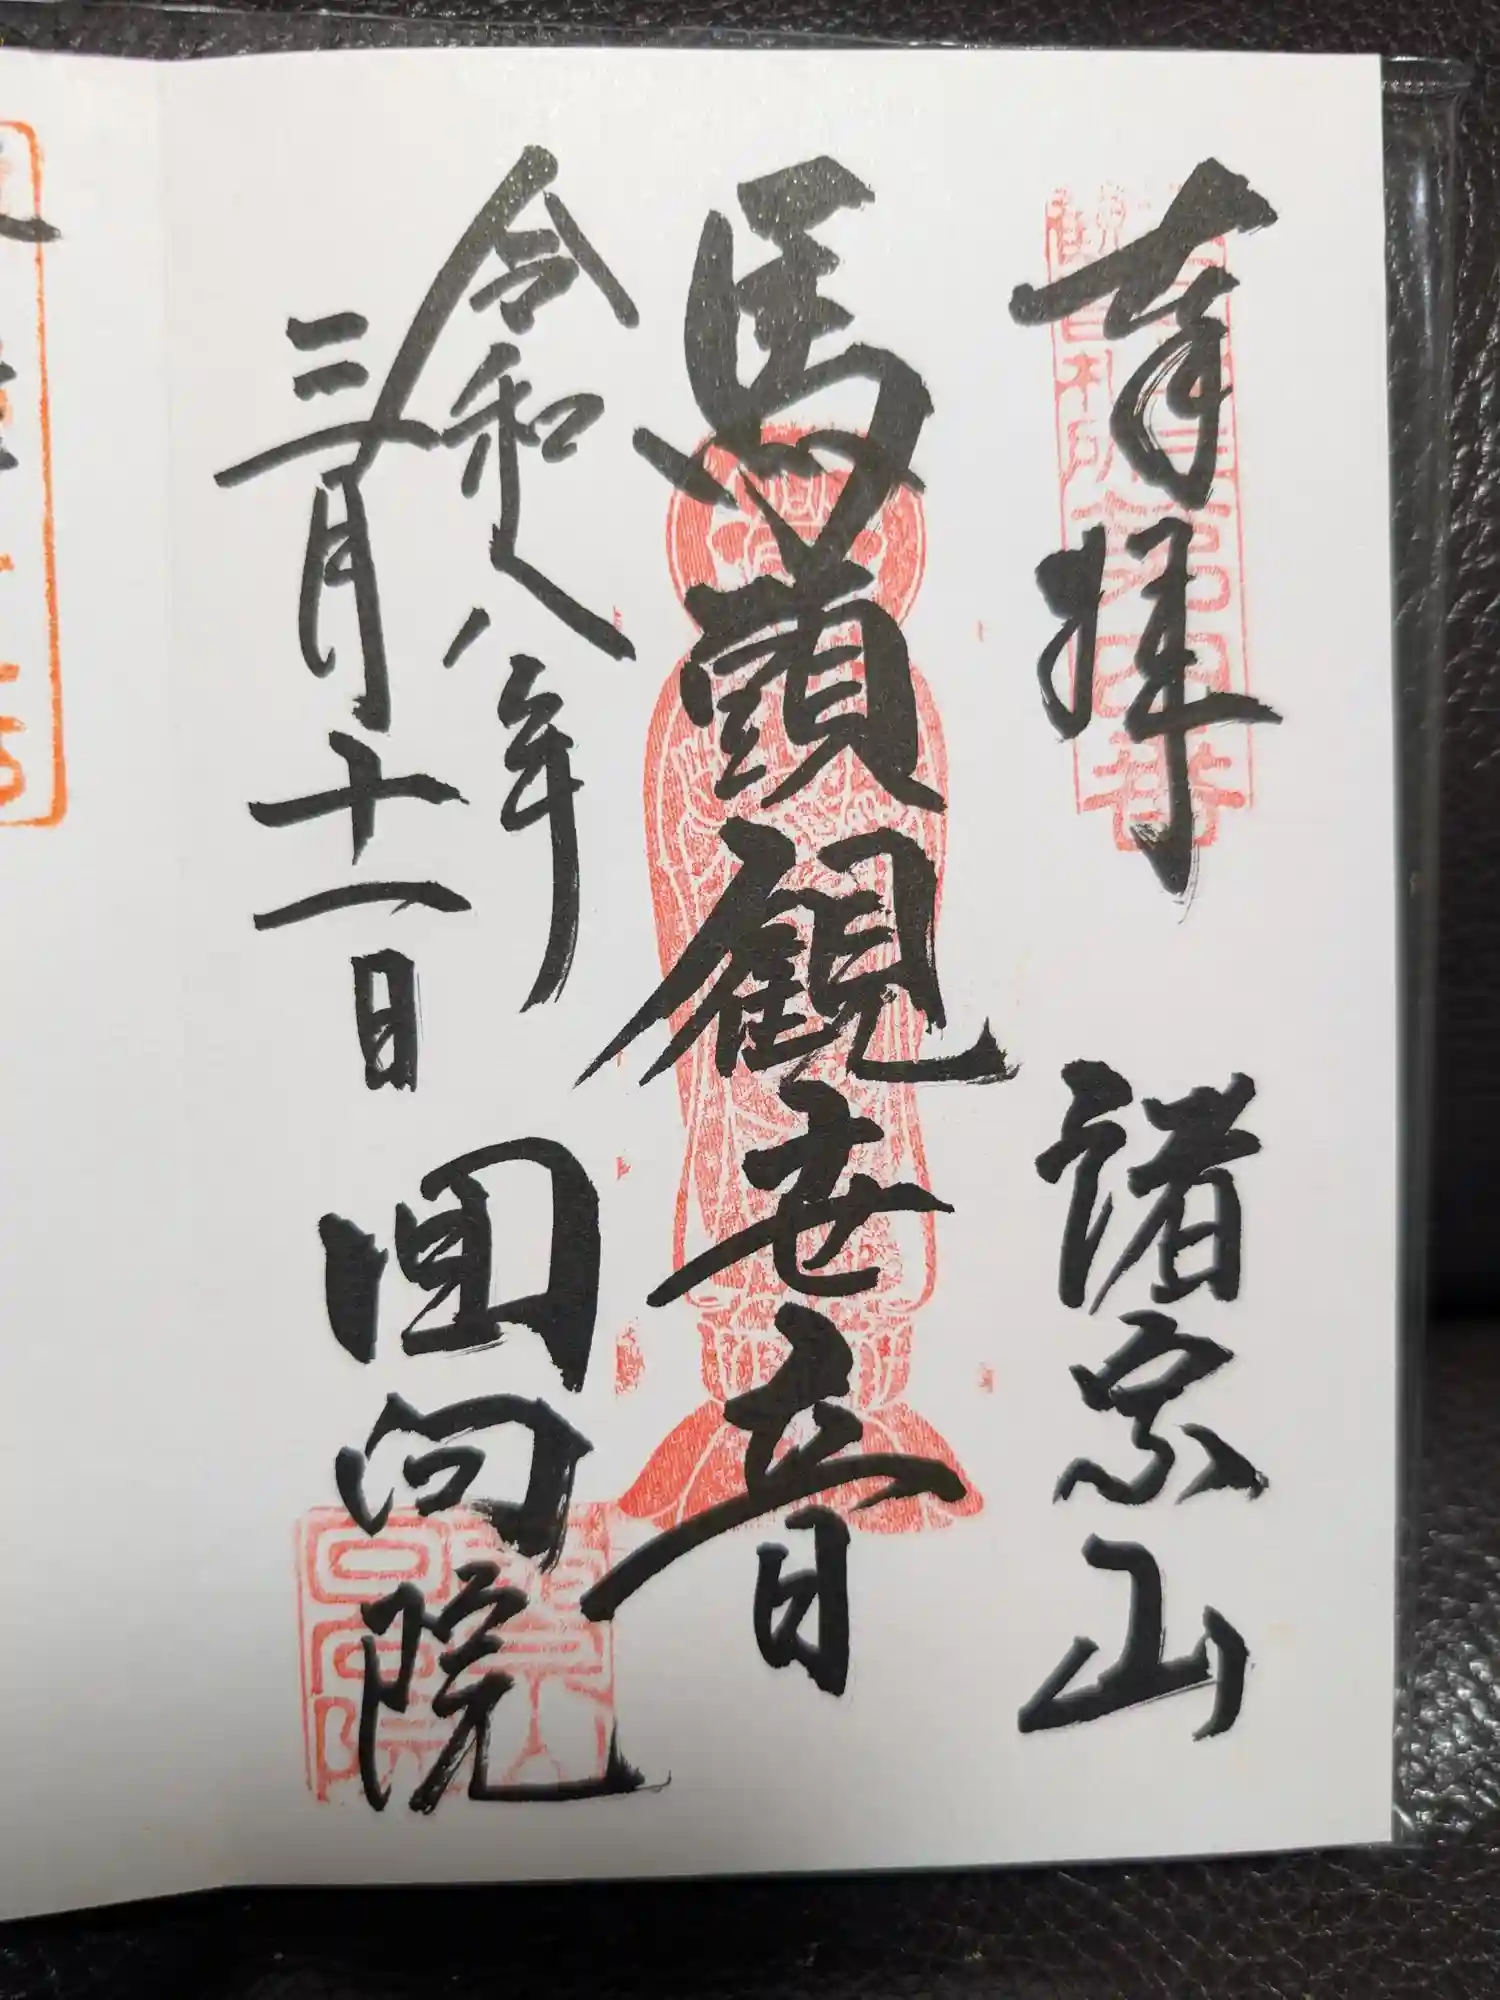 奉拝 諸宗山
馬頭觀世音
令和八年
三月十一日 回向院